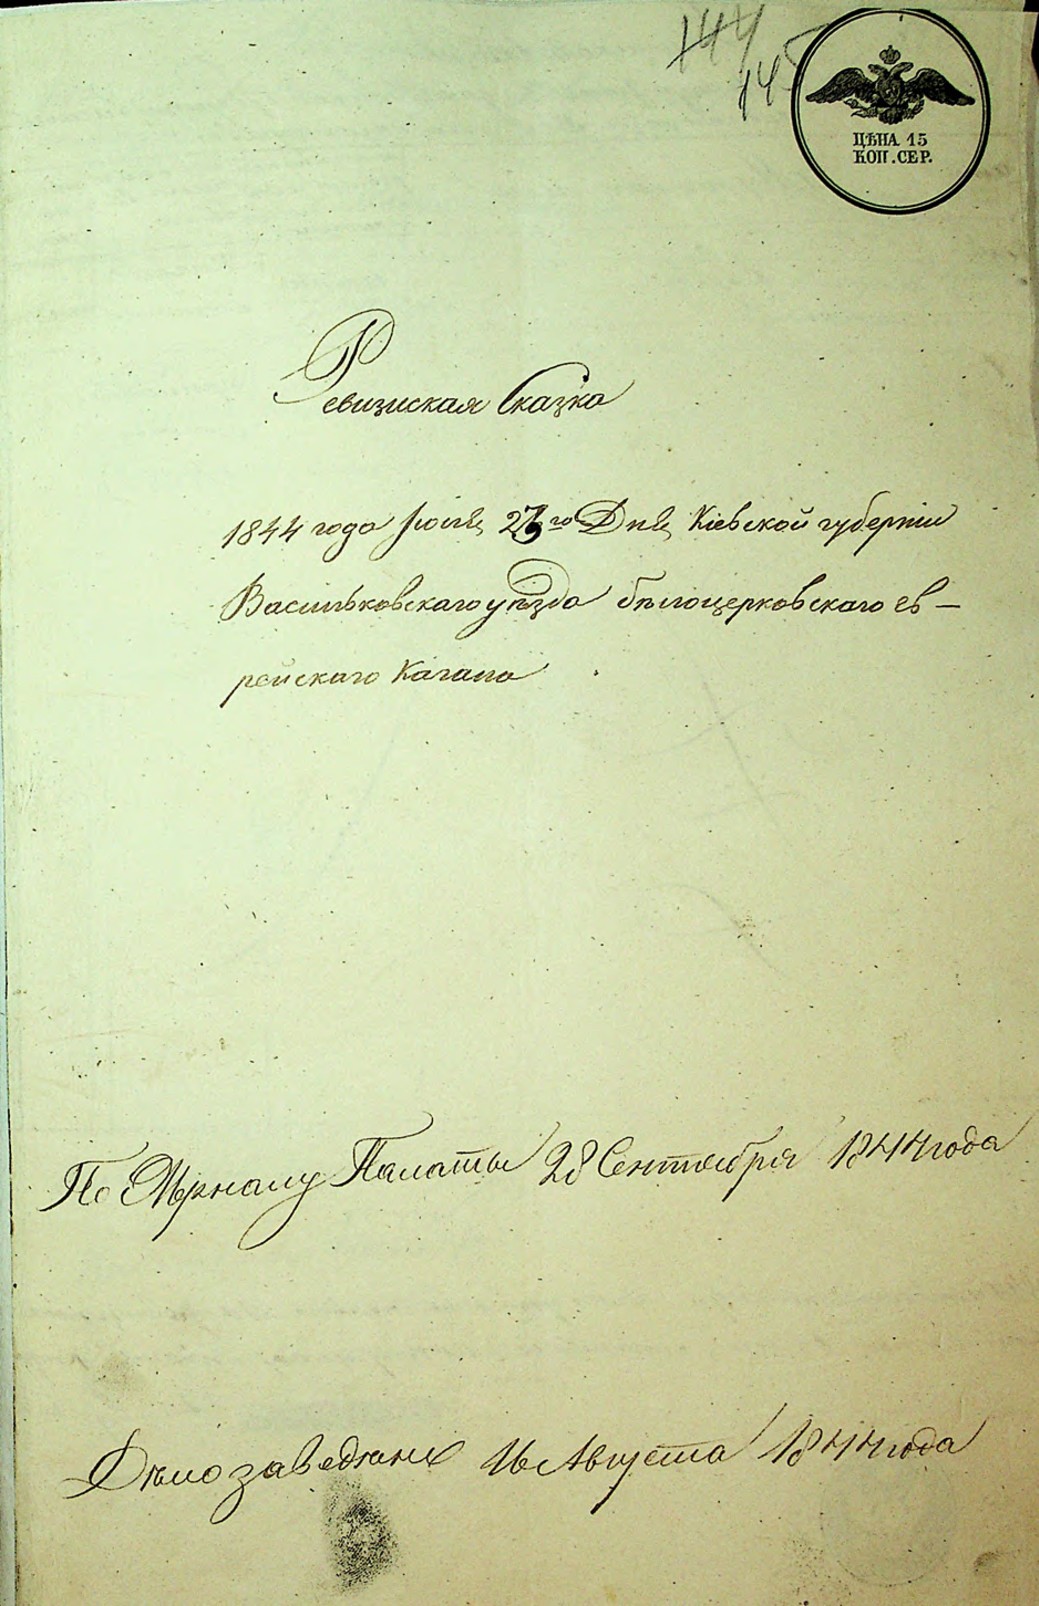 144
145
ЦѢНА 15
КОП. СЕР.
Ревизиская Сказка
1844 года Іюля 23го Дня Кіевской губерніи
Васильковскаго уѣзда бѣлоцерковскаго ев–
рейскаго Кагала
По Журналу Палаты 28 Сентября 1844 года
16 Августа 1844 года